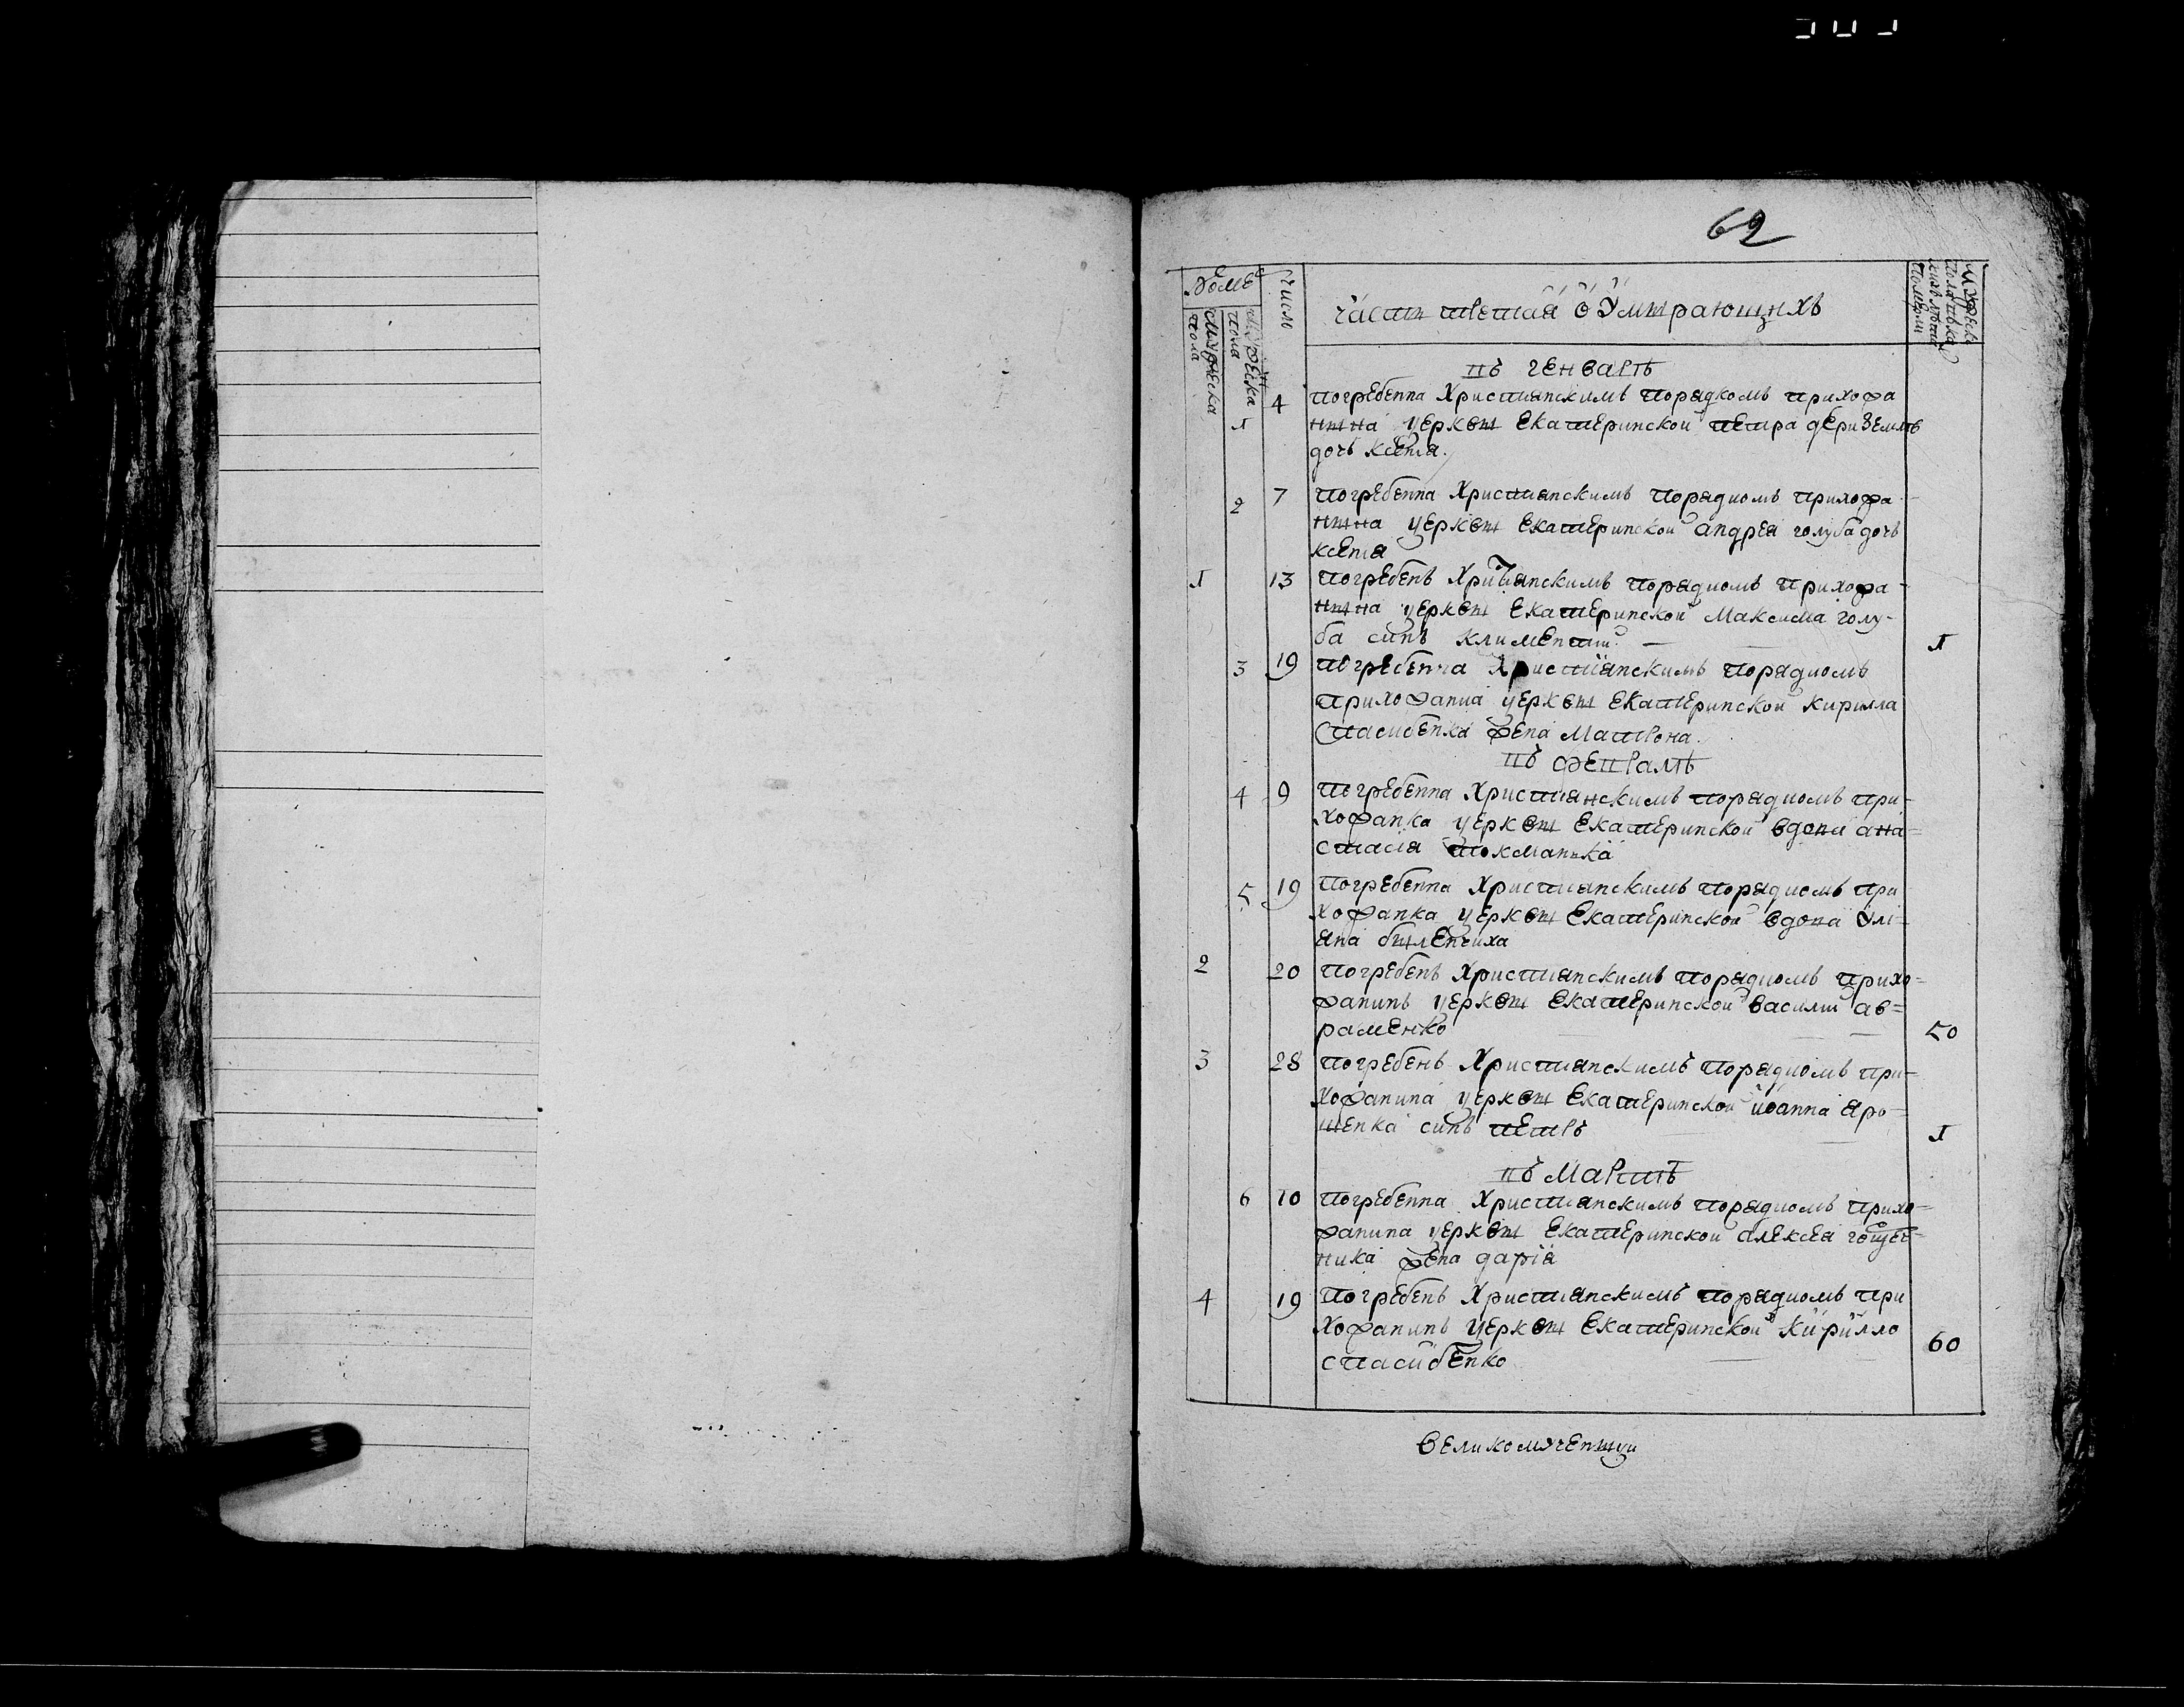 62
Числ
Мужеска пола
часть третая о Умирающихъ
въ генварѣ
4 погребенна Христианскимъ порядкомъ прихожа
1 нина церкви Екатеринской петра дериземлѣ
дочь ксения.
2 7 погребенна Христианскимъ порядкомъ прихожа-
нина церкви Екатеринской андрея голуба дочь
ксения
1 13 погребенъ Христианскимъ порядкомъ прихожа-
нина церкви Екатеринской максима голу-
ба синъ климентий 1
3 19 погребенна Христианскимъ порядкомъ
прихожанина церкви Екатеринской кирилла
Спасибенка жена матрона.
въ февралѣ
4 9 погребенна Христианскимъ порядкомъ при-
хожанка церкви Екатеринской вдова ана-
стасия токманка
5 19 погребенна Христианскимъ порядкомъ при
хожанка церкви Екатеринской вдова улі-
яна биленчиха
2 20 погребенъ Христианскимъ порядкомъ прихо-
жанинъ церкви Екатеринской василий ав-
раменко 50
3 28 погребенъ Христианскимъ порядкомъ при-
хожанина церкви Екатеринской иоанна яро-
шенка синъ петръ 1
въ мартѣ
6 10 погребенна Христианскимъ порядкомъ прихо-
жанина церкви Екатеринской алексея
ника жена дария
4 19 погребенъ Христианскимъ порядкомъ при
хожанинъ церкви Екатеринской Кирилло
спасибенко 60
великомученици